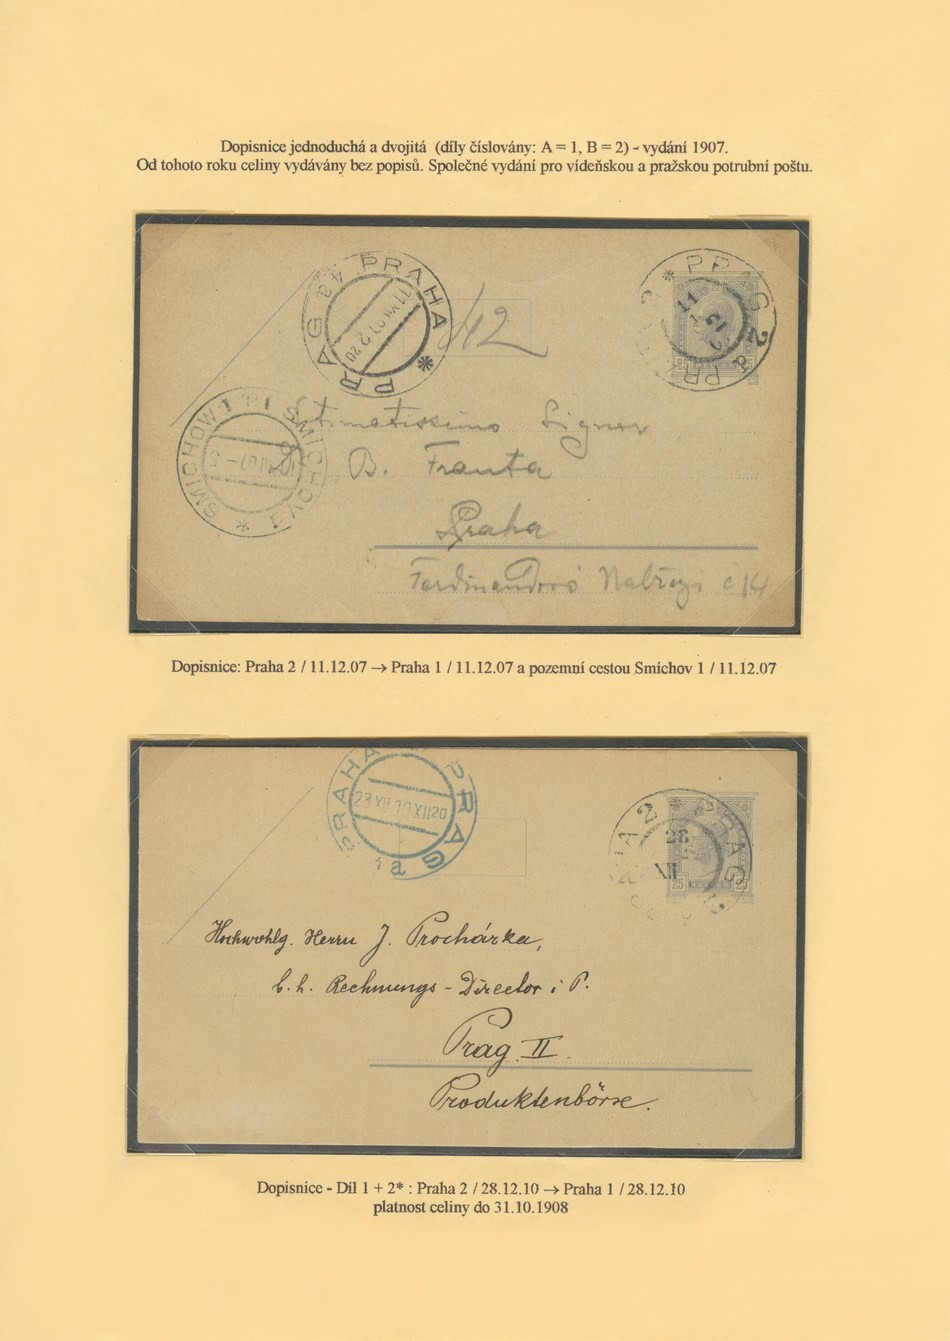 Dopisnice jednoduchá a dvojitá (díly číslovány: A = 1, B = 2) - vydání 1907.
Od tohoto roku celiny vydávány bez popisů. Společné vydání pro vídeňskou a pražskou potrubní poštu.
PRAHA * PRAG 4a
* PRAG 2
42
25 25
SMICHOW 1 SMÍCHOV 1 *
Signor
B. Franta
Praha
Nabřeží č 14
Dopisnice: Praha 2 / 11.12.07 → Praha 1 / 11.12.07 a pozemní cestou Smíchov 1 / 11.12.07
PRAHA PRAG 1a
* PRAG
28
XII
25 25
Hochwohlg. Herrn J. Procházka,
Rechnungs - Director i. P.
Prag II.
Produktenbörse.
Dopisnice - Díl 1 + 2* : Praha 2 / 28.12.10 → Praha 1 / 28.12.10
platnost celiny do 31.10.1908